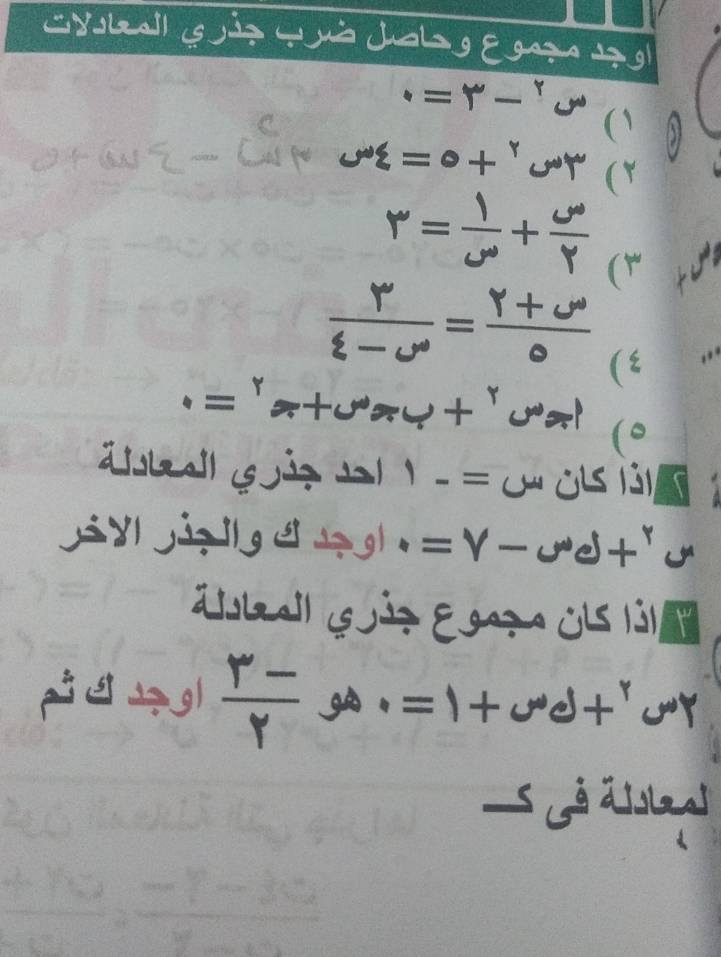 اوجد مجموع وحاصل ضرب جذري المعادلات
١) س٢ − ٣ = ٠
٢) ٣س٢ + ٥ = ٤س
٣) س/٢ + ١/س = ٣
٤) س + ٢/٥ = ٣/س − ٤
٥) اجـس٢ + ب جـس + جـ٢ = ٠
٢ اذا كان س = - ١ احد جذري المعادلة
س٢ + ك س − ٧ = ٠ اوجد ك والجذر الاخر
٣ اذا كان مجموع جذري المعادلة
٢س٢ + ك س + ١ = ٠ هو −٣/٢ اوجد ك ثم
لمعادلة في كـ